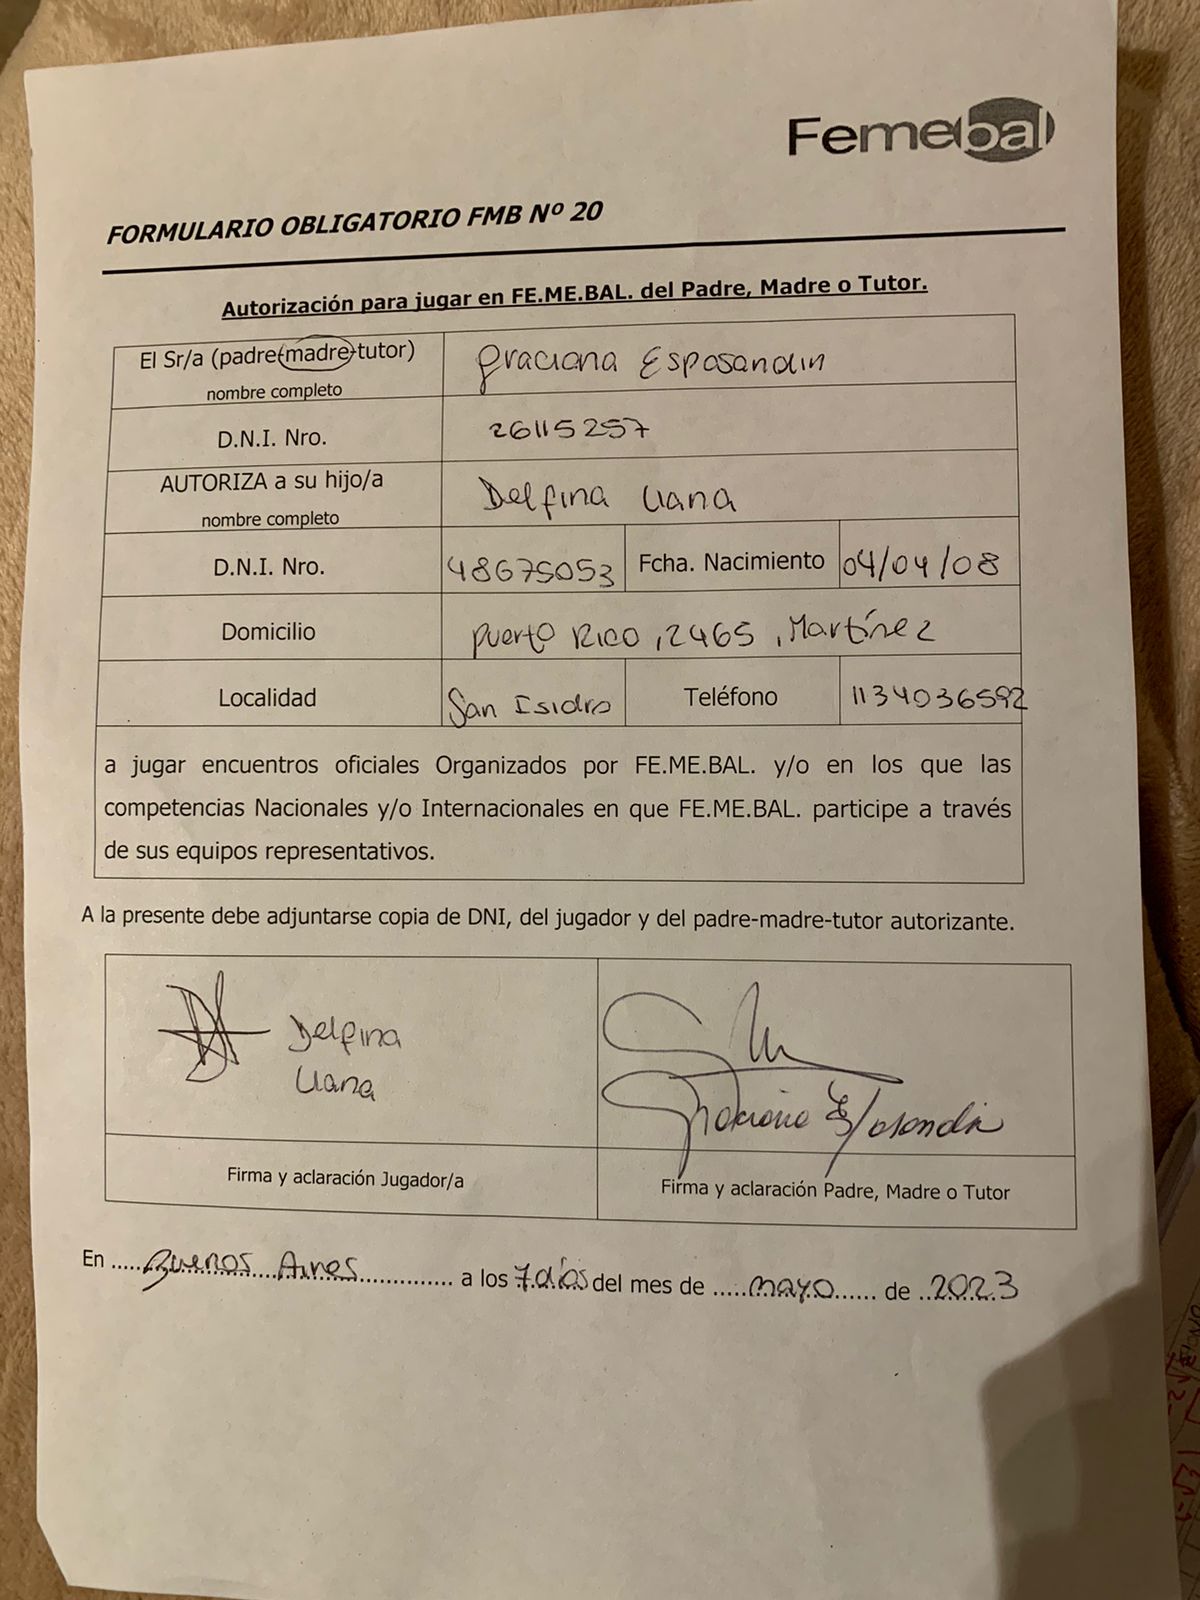 Femebal
FORMULARIO OBLIGATORIO FMB Nº 20
Autorización para jugar en FE.ME.BAL. del Padre, Madre o Tutor.
El Sr/a (padre-madre-tutor)
nombre completo
Graciana Esposandin
D.N.I. Nro.
26115257
AUTORIZA a su hijo/a
nombre completo
Delfina Uana
D.N.I. Nro.
48675053
Fcha. Nacimiento
04/04/08
Domicilio
Puerto Rico, 2465, Martínez
Localidad
San Isidro
Teléfono
1134036592
a jugar encuentros oficiales Organizados por FE.ME.BAL. y/o en los que las
competencias Nacionales y/o Internacionales en que FE.ME.BAL. participe a través
de sus equipos representativos.
A la presente debe adjuntarse copia de DNI, del jugador y del padre-madre-tutor autorizante.
Delfina
Uana
Graciana Esposandin
Firma y aclaración Jugador/a
Firma y aclaración Padre, Madre o Tutor
En ..... Buenos Aires ............... a los 7 días del mes de ..... mayo ...... de 2023